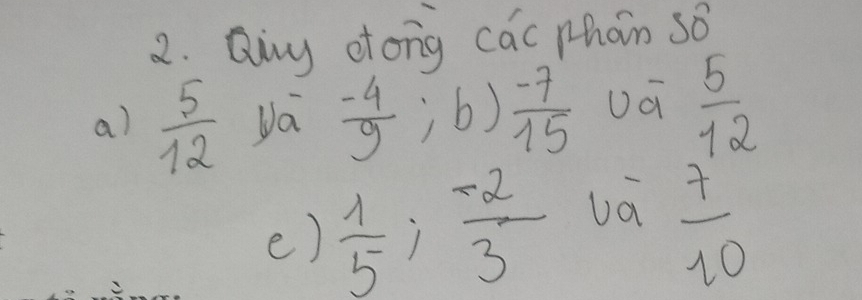 2. Quy đồng các phân số
a) 5/12 và -4/9 ; b) -7/15 và 5/12
c) 1/5 ; -2/3 và 7/10